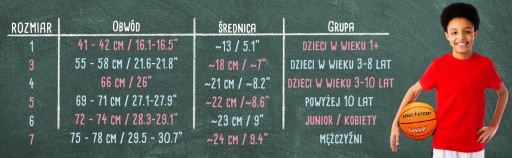 ROZMIAR OBWÓD ŚREDNICA GRUPA
1 41 - 42 CM / 16.1-16.5" ~13 / 5.1" DZIECI W WIEKU 1+
3 55 - 58 CM / 21.6-21.8" ~18 CM / ~7" DZIECI W WIEKU 3-8 LAT
4 66 CM / 26" ~21 CM / ~8.2" DZIECI W WIEKU 3-10 LAT
5 69 - 71 CM / 27.1-27.9" ~22 CM / ~8.6" POWYŻEJ 10 LAT
6 72 - 74 CM / 28.3-29.1" ~23 CM / 9" JUNIOR / KOBIETY
7 75 - 78 CM / 29.5 - 30.7" ~24 CM / 9.4" MĘŻCZYŹNI
meteor
LAYUP